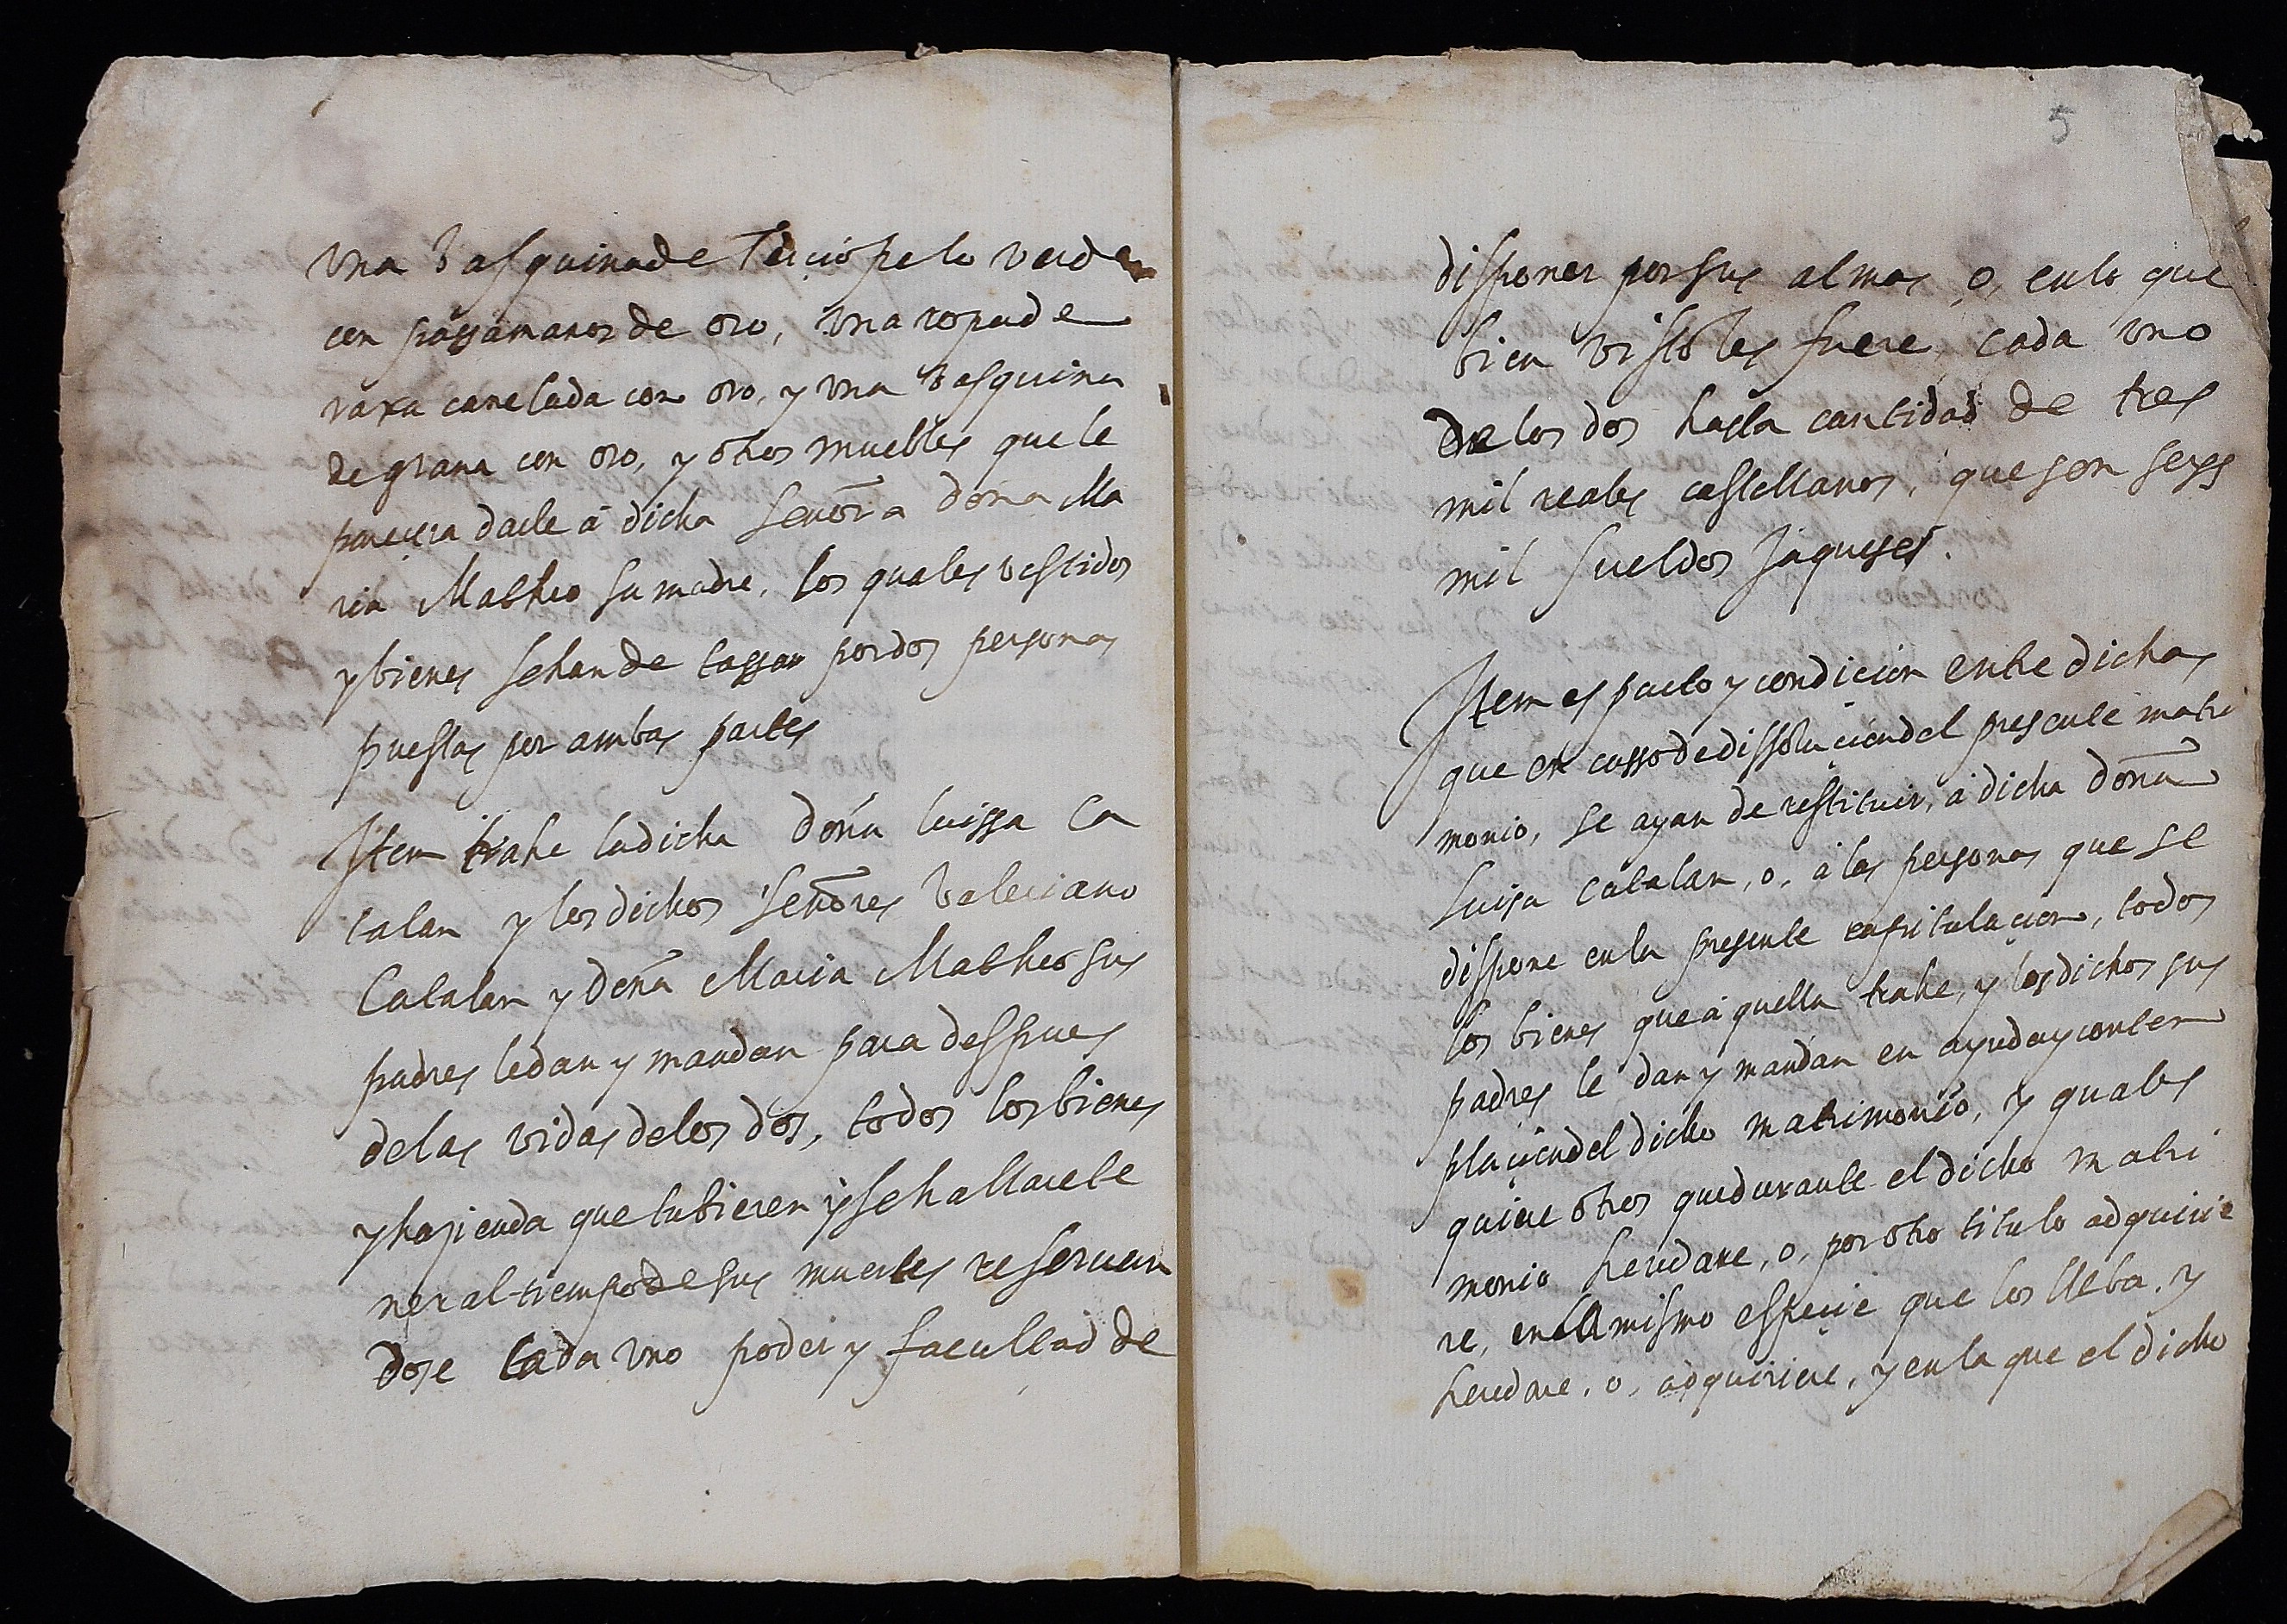 Vna basquina de Terciopelo verde
con passamanos de oro, Vna ropa de
raxa canelada con oro, y Vna basquina
de grana con oro, y otros muebles que le
parecera darle à dicha Señora doña Ma
ria Matheo su madre, los quales vestidos
y bienes se han de tassar por dos personas
puestas por ambas partes
Item trahe la dicha Doña luissa Ca
talan y los dichos Señores Valeriano
Catalan y Doña Maria Matheo sus
padres le dan y mandan para despues
de las vidas de los dos, todos los bienes
y hazienda que tubieren y se hallare te
ner al tiempo de sus muertes reseruan
dose cada Vno poder y facultad de
5
disponer por sus almas, o, en lo que
bien visto les fuere, cada Vno
de los dos hasta cantidad de tres
mil reales castellanos, que son seys
mil sueldos Jaqueses.
Item es pacto y condicion entre dichas
que en casso de dissolucion del presente matri
monio, se ayan de restituir, à dicha Doña
Luisa Catalan, o, à las personas que se
dispone en la presente capitulacion, todos
los bienes que aquella trahe, y los dichos sus
padres le dan y mandan en ayuda y contem
placion del dicho matrimonio, y quales
quiere otros que durante el dicho matri
monio heredare, o, por otro titulo adquirie
re, en la mismo especie que los lleba, y
heredare, o, adquiriere, y en la que el dicho